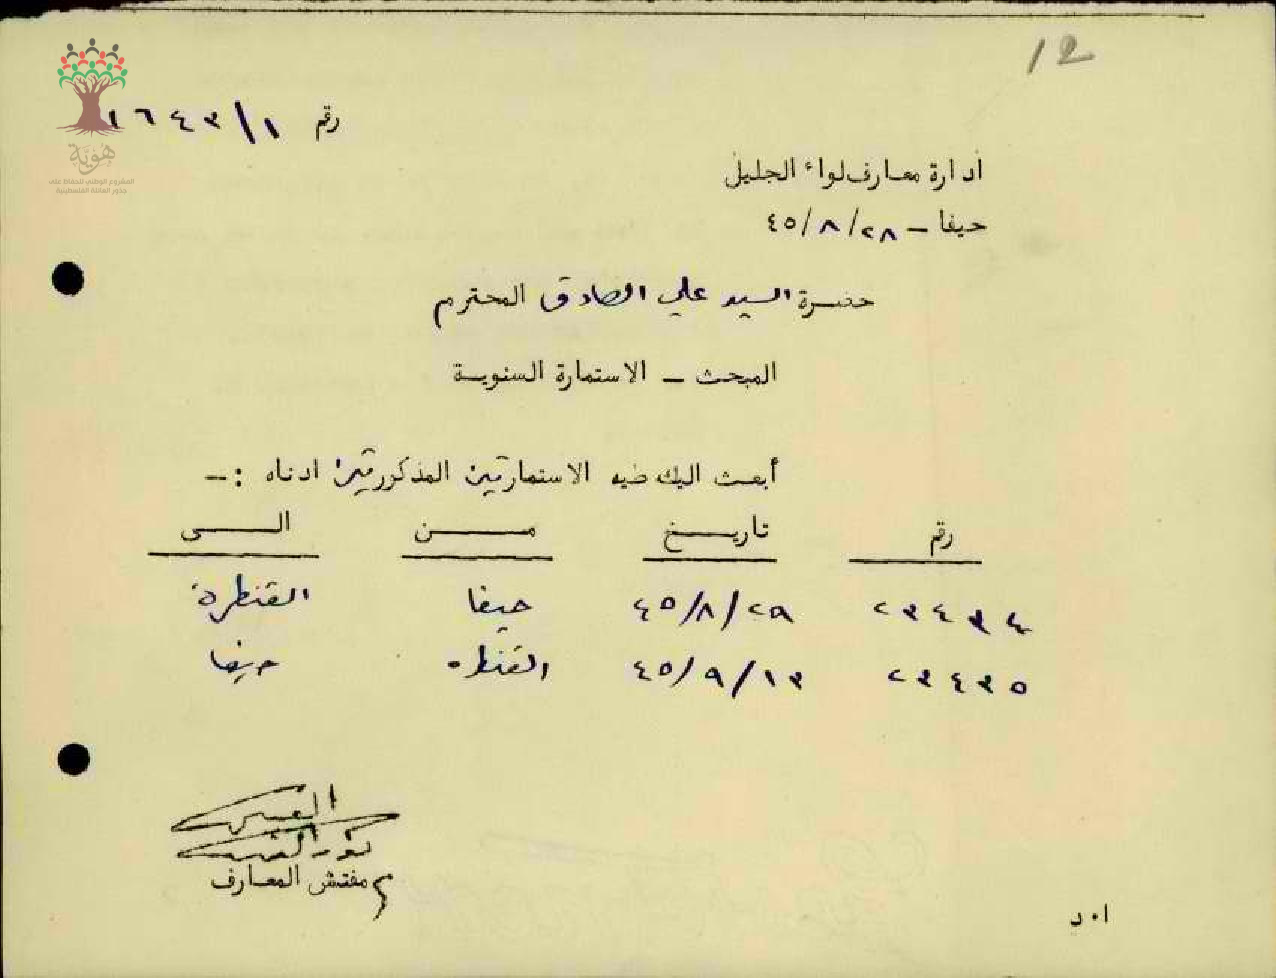 12
رقم ١٦٤٣/١
هُوِيَّة
المشروع الوطني للحفاظ على
جذور العائلة الفلسطينية
ادارة معارف لواء الجليل
حيفا – ٤٥/٨/٢٨
حضرة السيد علي الصادق المحترم
المبحث – الاستمارة السنوية
أبعث اليك طيه الاستمارتين المذكورتين ادناه :–
رقم تاريخ من الى
٢٣٤٣٤ ٤٥/٨/٢٩ حيفا القنطرة
٢٣٤٣٥ ٤٥/٩/١٣ القنطره حيفا
مفتش المعارف
ا٠د